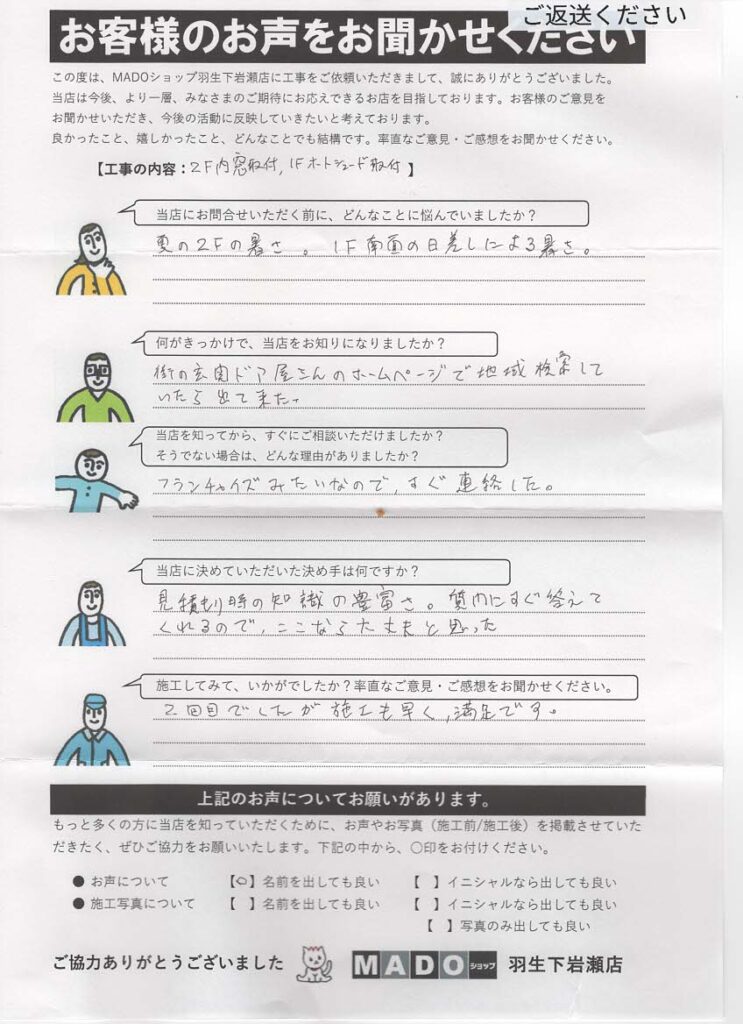 ご返送ください
お客様のお声をお聞かせください
この度は、MADOショップ羽生下岩瀬店に工事をご依頼いただきまして、誠にありがとうございました。
当店は今後、より一層、みなさまのご期待にお応えできるお店を目指しております。お客様のご意見を
お聞かせいただき、今後の活動に反映していきたいと考えております。
良かったこと、嬉しかったこと、どんなことでも結構です。率直なご意見・ご感想をお聞かせください。
【工事の内容：2F内窓取付, 1Fオートシェード取付】
当店にお問合せいただく前に、どんなことに悩んでいましたか？
夏の2Fの暑さ。1F南面の日差しによる暑さ。
何がきっかけで、当店をお知りになりましたか？
街の玄関ドア屋さんのホームページで地域検索して
いたら出て来た。
当店を知ってから、すぐにご相談いただけましたか？
そうでない場合は、どんな理由がありましたか？
フランチャイズみたいなので、すぐ連絡した。
当店に決めていただいた決め手は何ですか？
見積もり時の知識の豊富さ。質内にすぐ答えて
くれるので、ここなら大丈夫と思った
施工してみて、いかがでしたか？率直なご意見・ご感想をお聞かせください。
2回目でしたが施工も早く、満足です。
上記のお声についてお願いがあります。
もっと多くの方に当店を知っていただくために、お声やお写真（施工前/施工後）を掲載させていた
だきたく、ぜひご協力をお願いいたします。下記の中から、〇印をお付けください。
● お声について 【○】名前を出しても良い 【 】イニシャルなら出しても良い
● 施工写真について 【 】名前を出しても良い 【 】イニシャルなら出しても良い
【 】写真のみ出しても良い
ご協力ありがとうございました MADOショップ 羽生下岩瀬店